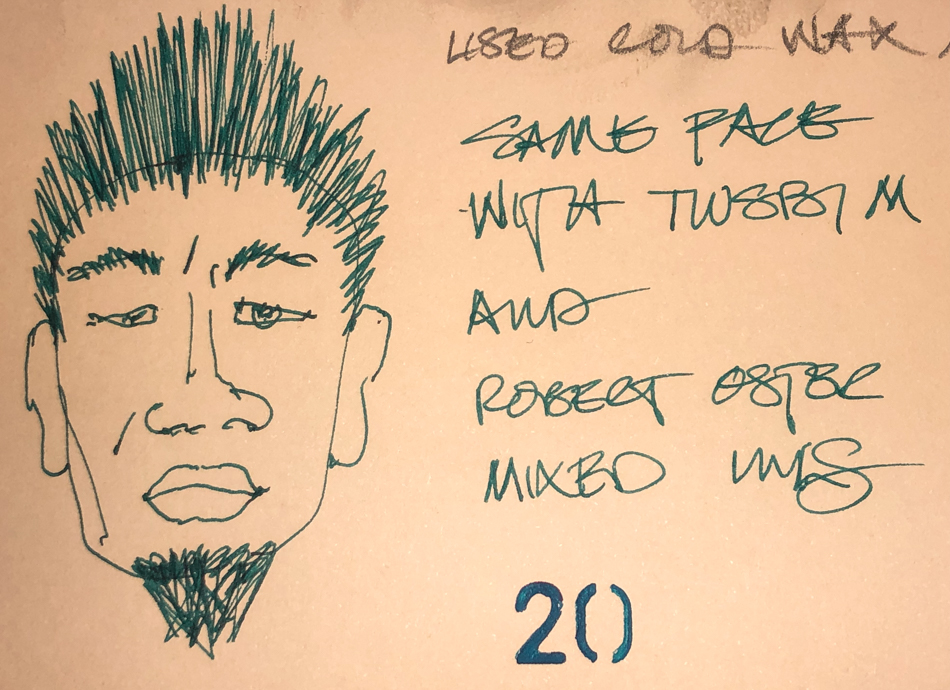 USED COLD WAX,
SAME FACE
WITH TWSBI M
AND
ROBERT OSTER
MIXED INKS
20